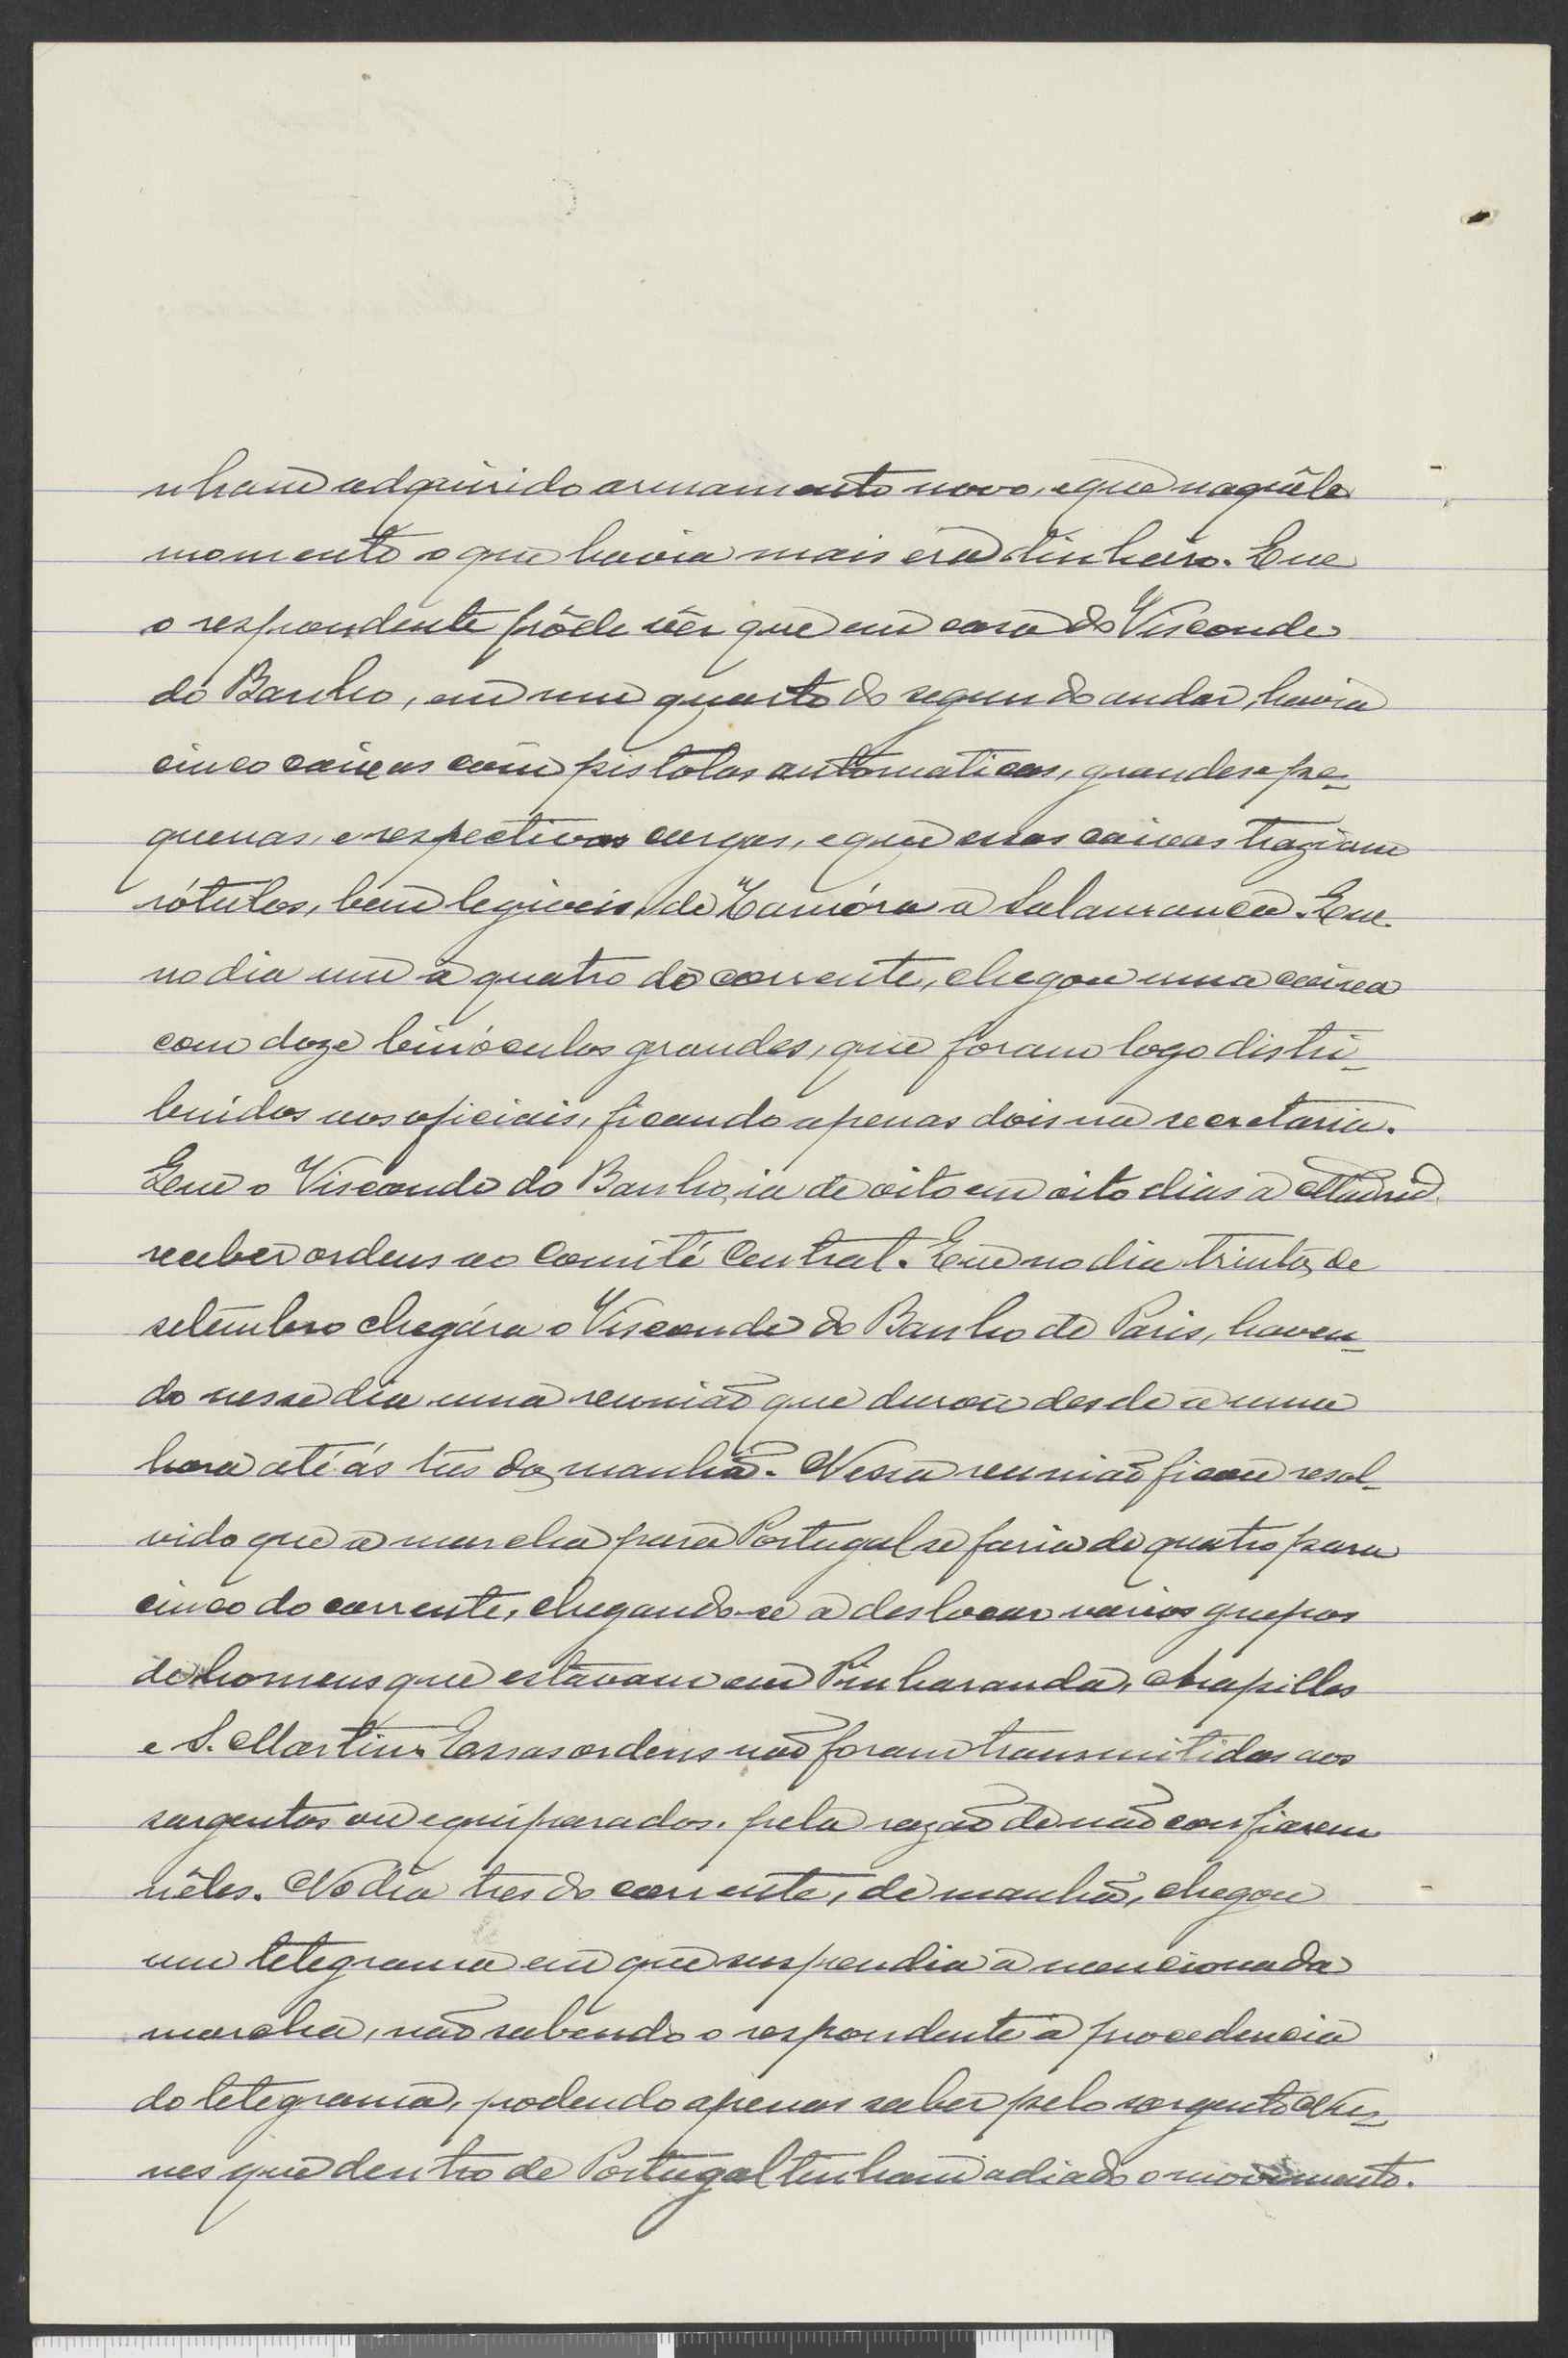 nham adquirido armamento novo, e que naquêle
momento o que havia mais era dinheiro. Que
o respondente pôde vêr que em casa do Visconde
do Banho, em um quarto do segundo andar, havia
cinco caixas com pistolas automaticas, grandes e pe-
quenas, e respectivas cargas, e que essas caixas traziam
rótulos, bem legiveis, de Zamóra a Salamanca. Que
no dia um a quatro do corrente, chegou uma caixa
com doze binóculos grandes, que foram logo distri-
buidos aos oficiais, ficando apenas dois na secretaria.
Que o Visconde do Banho, ia de oito em oito dias a Madrid
receber ordens ao Comité Central. Que no dia trinta de
setembro chegára o Visconde do Banho de Paris, haven-
do nesse dia uma reunião que durou desde a uma
hora até ás tres da manhã. Nessa reunião ficou resol-
vido que a marcha para Portugal se faria de quatro para
cinco do corrente, chegando-se a deslocar varios grupos
de homens que estavam em Pinharanda, Arapilles
e S. Martin. Essas ordens não foram transmitidas aos
sargentos ou equiparados, pela razão de não confiarem
nêles. No dia tres do corrente, de manhã, chegou
um telegrama em que suspendia a mencionada
marcha, não sabendo o respondente a procedencia
do telegrama, podendo apenas saber pelo sargento Nu-
nes que dentro de Portugal tinham adiado o movimento.